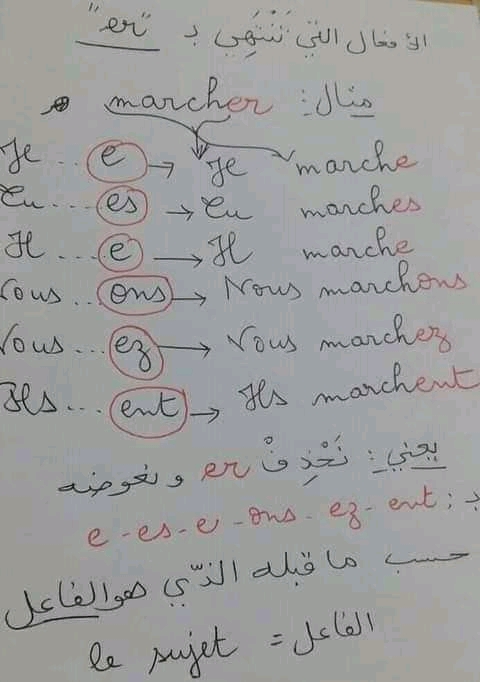 الأفعال التي تَنْتَهِي بـ "er"
مثال: marcher
Je ... e → Je marche
Tu ... es → Tu marches
Il ... e → Il marche
Nous ... ons → Nous marchons
Vous ... ez → Vous marchez
Ils ... ent → Ils marchent
يعني: نَحْذِفْ er ونعوضه
بـ: e - es - e - ons - ez - ent
حسب ما قبله الذّي هو الفاعل
الفاعل = le sujet